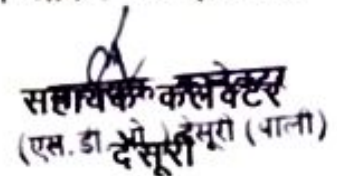 सहायक कलेक्टर
(एस. डी. ओ.) देसूरी (पाली)
देसूरी